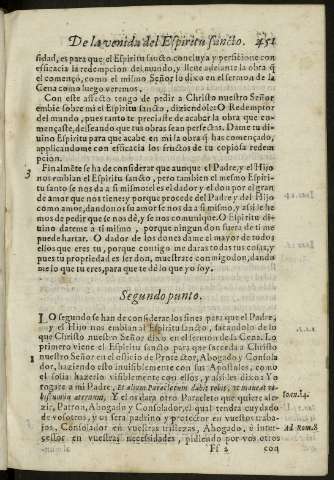 De la venida del Espiritu sancto. 451
sidad, es para que el Espiritu sancto concluya y perficione con
efficacia la redempcion del mundo, y lleue adelante la obra q̃
el començò, como el mismo Señor lo dixo en el sermon de la
Cena como luego veremos.
Con este affecto tengo de pedir a Christo nuestro Señor
embie sobre mi el Espiritu sancto, diziendole: O Redemptor
del mundo, pues tanto te preciaste de acabar la obra que co-
mençaste, desseando que tus obras sean perfectas. Dame tu di-
uino Espiritu para que acabe en mi la obra q̃ has començado,
applicandome con efficacia los fructos de tu copiosa redem
pcion.
3 Finalmẽte se ha de considerar que aunque el Padre, y el Hijo
nos embian el Espiritu sancto, pero tambien el mesmo Espiri-
tu sancto se nos da a si mismo: el es el dador y el don por el gran
de amor que nos tiene: y porque procede del Padre y del Hijo
como amor, dandonos su amor se nos da a si mismo, y assi le he
mos de pedir que se nos dè, y se nos comunique. O Espiritu di-
uino dateme a ti mismo, porque ningun don fuera de ti me
puede hartar. O dador de los dones dame el mayor de todos
ellos que eres tu, porque contigo me daras todas tus cosas, y
pues tu propriedad es ser don, muestrate conmigo don, dando
me lo que tu eres, para que te dè lo que yo soy.
Segundo punto.
LO segundo se han de considerar los fines para que el Padre,
y el Hijo nos embian al Espiritu sancto, sacandolo de lo
que Christo nuestro Señor dixo en el sermon de la Cena. Lo
1 primero viene el Espiritu sancto para que suceda a Christo
nuestro Señor en el officio de Protector, Abogado y Consola
dor, haziendo esto inuisiblemente con sus Apostoles, como
el solia hazerlo visiblemente con ellos, y assi les dixo: Yo
rogare a mi Padre, Et alium Paracletum dabit vobis, vt maneat vo-
biscum in æternum, Y el os dara otro Paracleto que quiere de-
zir, Patron, Abogado y Consolador, el qual tendra cuydado
de vosotros, y os sera padrino y protector en vuestros traba-
jos, Consolador en vuestras tristezas, Abogado, è inter-
cessor en vuestras necessidades, pidiendo por vos otros
Ioan. 14.
Ad Rom. 8
Ff 2 con